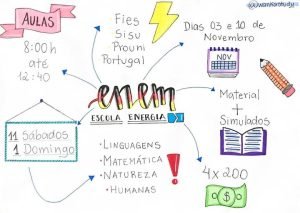 AULAS
8:00h
até
12:40
Fies
Sisu
Prouni
Portugal
Dias 03 e 10 de
Novembro
NOV
enem
ESCOLA ENERGIA
Material
+
Simulados
11 Sábados
1 Domingo
• LINGUAGENS
• MATEMÁTICA
• NATUREZA
• HUMANAS
4 x 200
$